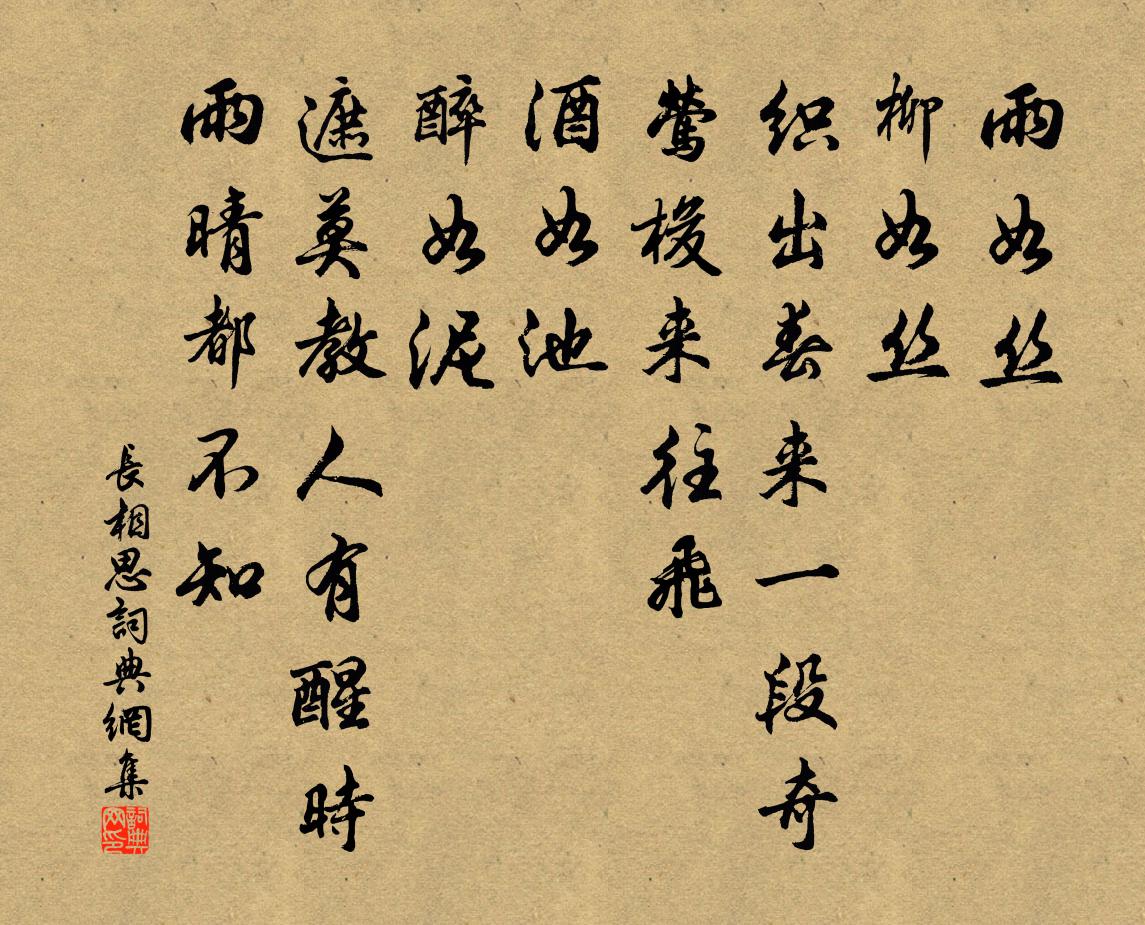 雨如丝
柳如丝
织出春来一段奇
莺梭来往飛
酒如池
醉如泥
遮莫教人有醒時
雨晴都不知
長相思詞典網集
詞典网印